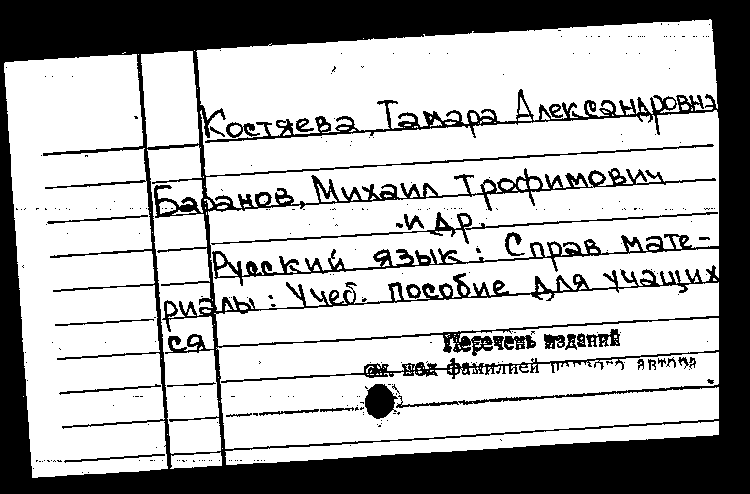 Костяева, Тамара Александровна
Баранов, Михаил Трофимович
и др.
Русский язык: Справ. мате-
риалы: Учеб. пособие для учащих
ся
Перечень изданий
см. под фамилией первого автора